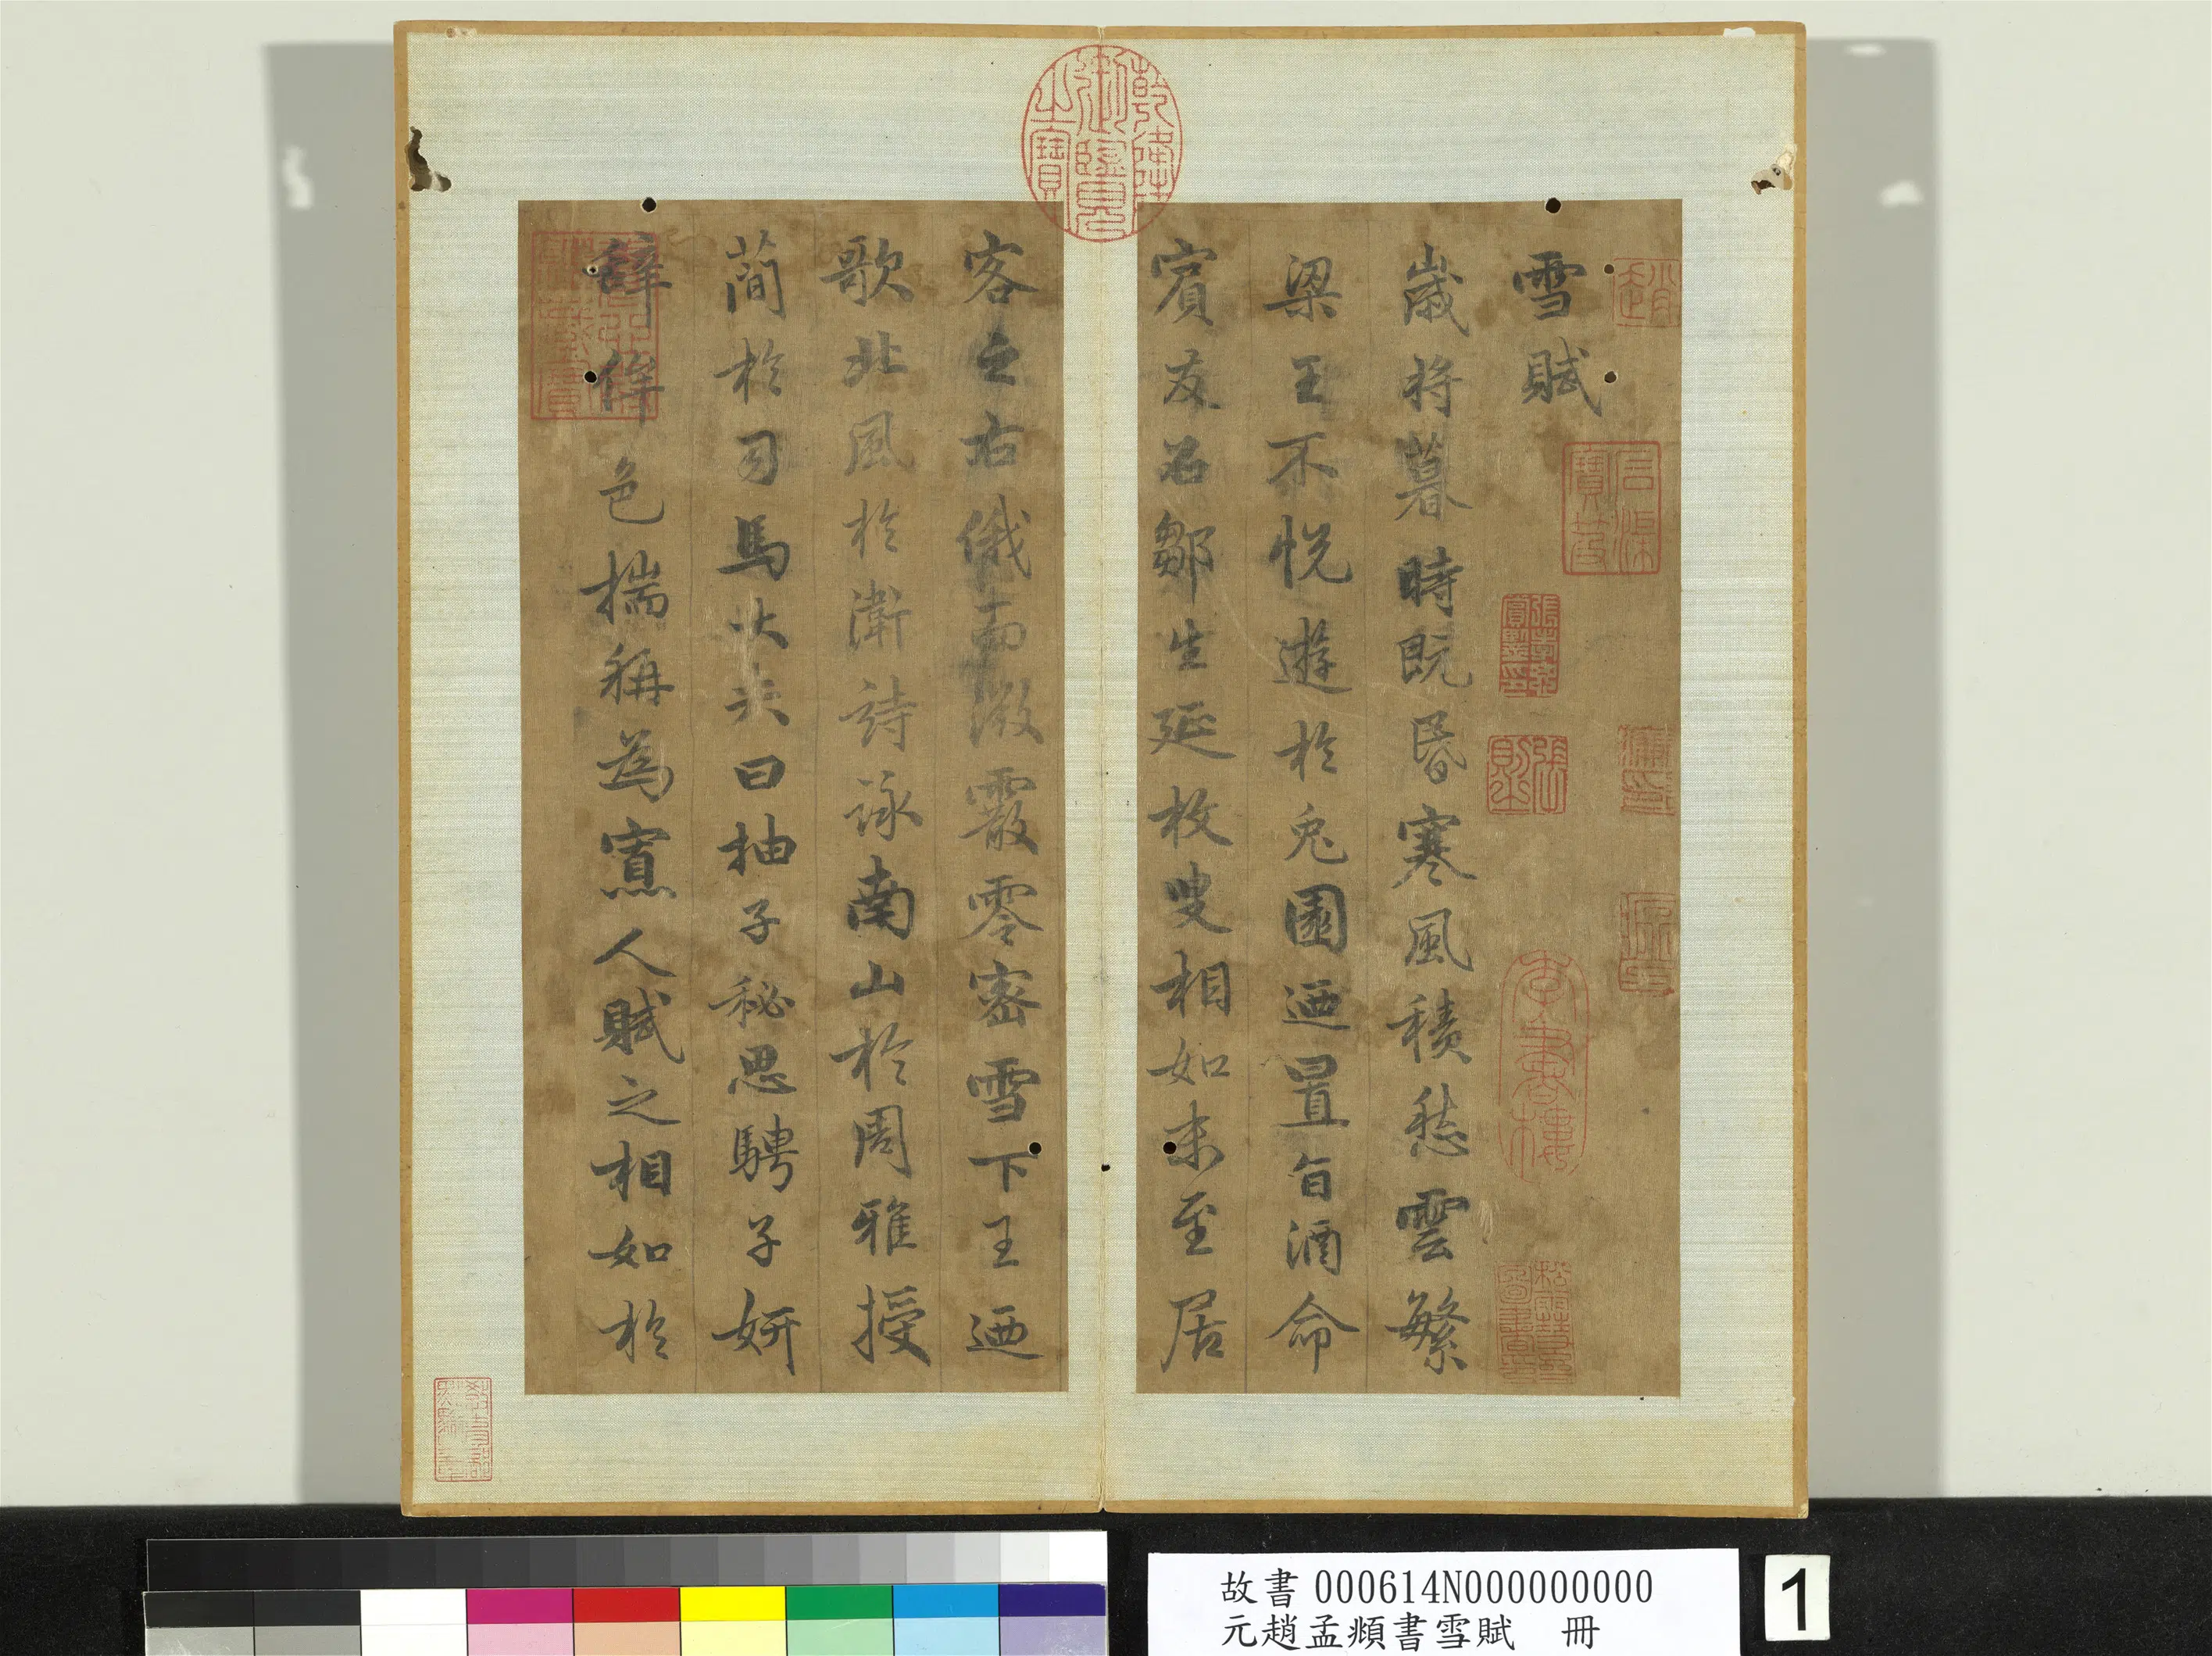 雪賦
歲將暮時既昏寒風積愁雲繁
梁王不悅遊於兔園迺置旨酒命
賓友召鄒生延枚叟相如末至居
客之右俄而微霰零密雪下王迺
歌北風於衛詩詠南山於周雅授
蕳於司馬大夫曰抽子秘思騁子妍
辭侔色揣稱為寡人賦之相如於
乾隆御覽之寶
故書000614N000000000
元趙孟頫書雪賦 冊
1